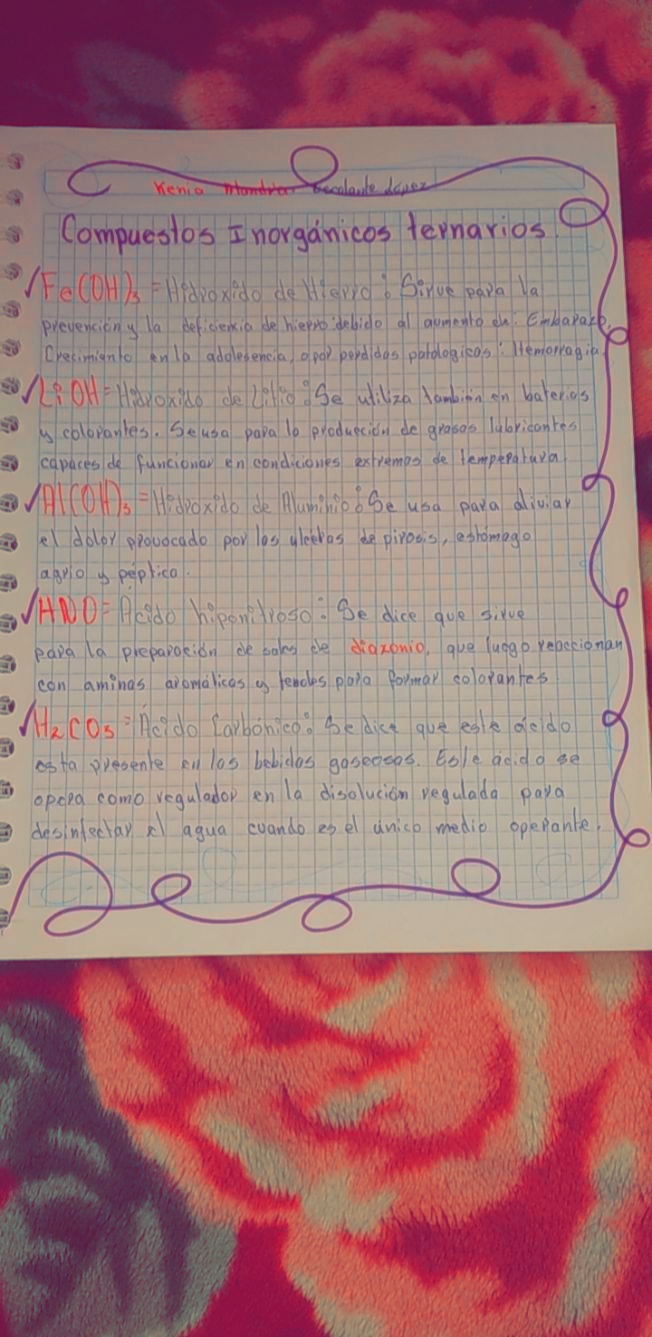 Kenia Escalante López
Compuestos Inorgánicos ternarios.
✓Fe(OH)₃ = Hidroxido de Hierro: Sirve para la
prevención y la deficiencia de hierro debido al aumento de: Embarazo,
Crecimiento en la adolesencia, o por perdidas patologicas: Hemorragia
✓LiOH = Hidroxido de Litio: Se utiliza también en baterias
y colorantes. Se usa para la producción de grasas lubricantes
capaces de funcionar en condiciones extremas de temperatura.
✓Al(OH)₃ = Hidroxido de Aluminio: Se usa para aliviar
el dolor provocado por las de pirosis, estómago
agrio y péptica.
✓HNO = Ácido hiponitroso: Se dice que sirve
para la preparación de sales de diazonio, que luego reaccionan
con aminas aromáticas y para formar colorantes.
✓H₂CO₃ = Ácido Carbónico: Se dice que este ácido
esta presente en las bebidas gaseosas. Este ácido se
opera como regulador en la disolución regulada para
desinfectar el agua cuando es el único medio operante.